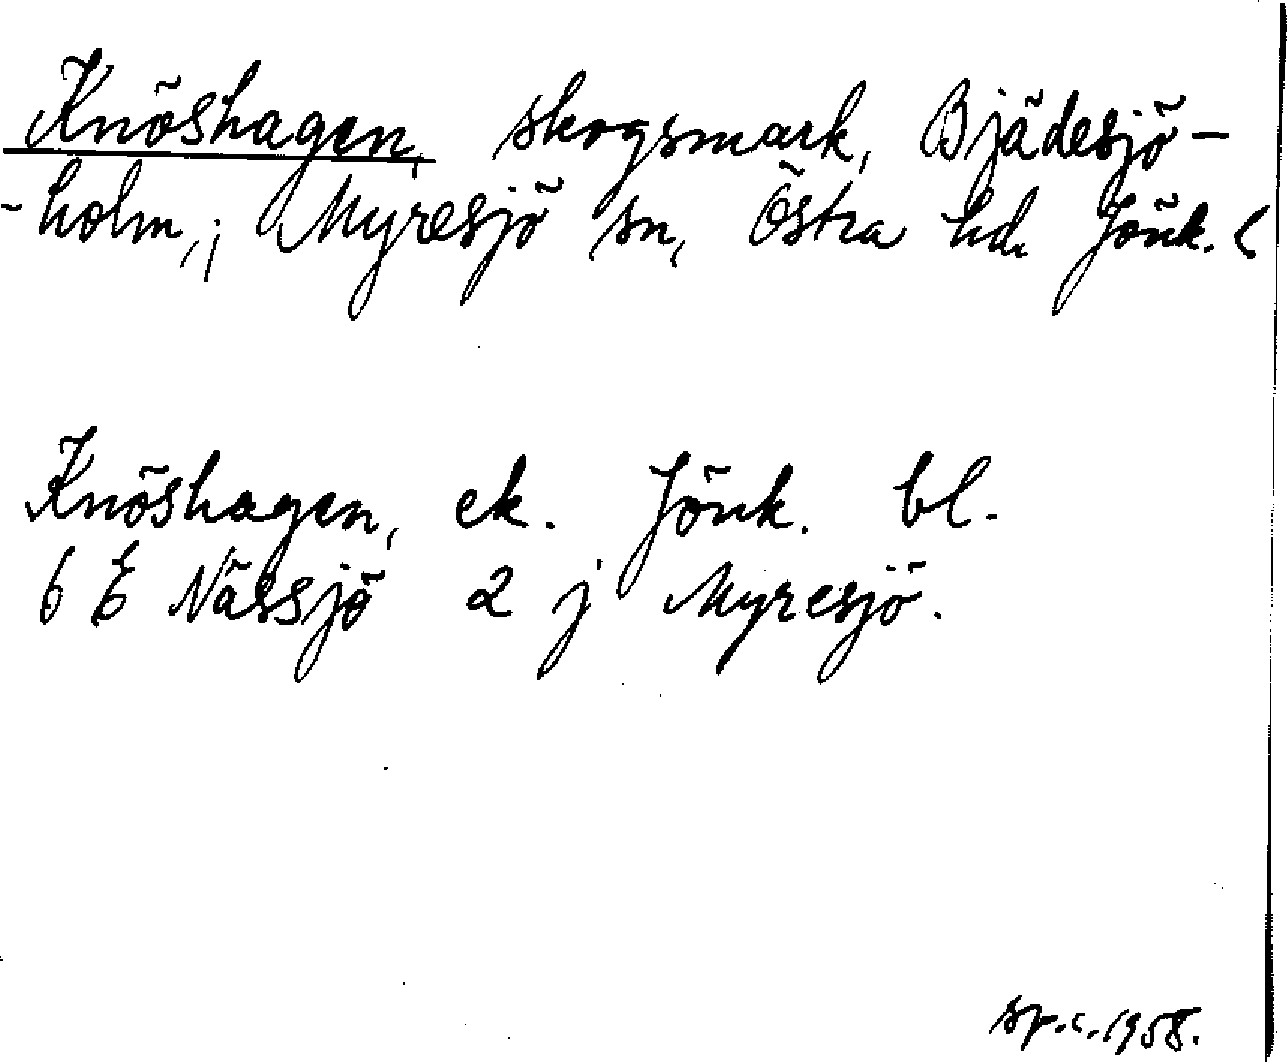 Knöshagen, skogsmark, Bjädesjö-
-holm, ; Myresjö sn, Östra hd. Jönk. l
Knöshagen, ek. Jönk. bl.
6 E Nässjö 2 j Myresjö.
sp.c. 1958.